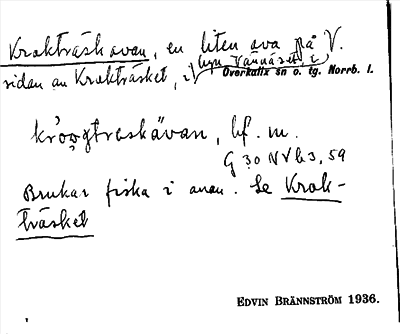 Krokträskavan, en liten ava på V.
sidan av Krokträsket, i byn Vännäset, i
Överkalix sn o. tg. Norrb. l.
kro̥o̥gtraskävan, bf. m.
G 30 NVb3, 59
Brukar fiska i avan. Se Krok-
träsket
EDVIN BRÄNNSTRÖM 1936.